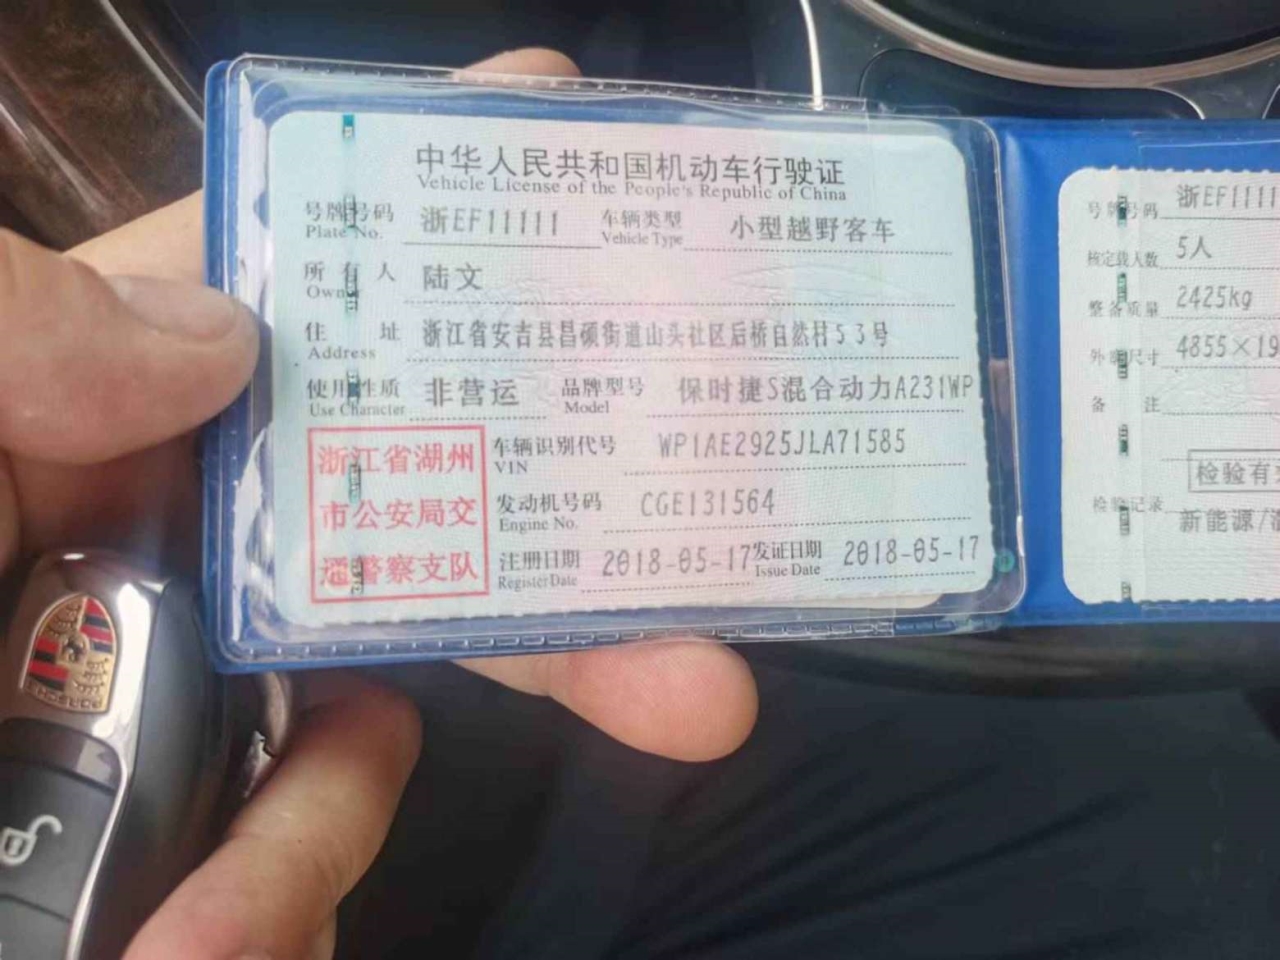 中华人民共和国机动车行驶证
Vehicle License of the People's Republic of China
号牌号码 浙EF11111 车辆类型 小型越野客车
Plate No. Vehicle Type
所有人 陆文
Owner
住址 浙江省安吉县昌硕街道山头社区后桥自然村53号
Address
使用性质 非营运 品牌型号 保时捷S混合动力A231WP
Use Character Model
浙江省湖州
市公安局交
通警察支队
车辆识别代号 WP1AE2925JLA71585
VIN
发动机号码 CGE131564
Engine No.
注册日期 2018-05-17 发证日期 2018-05-17
Register Date Issue Date
号牌号码 浙EF1111
核定载人数 5人
整备质量 2425kg
外廓尺寸 4855×19
备注
检验有
检验记录 新能源/
PORSCHE